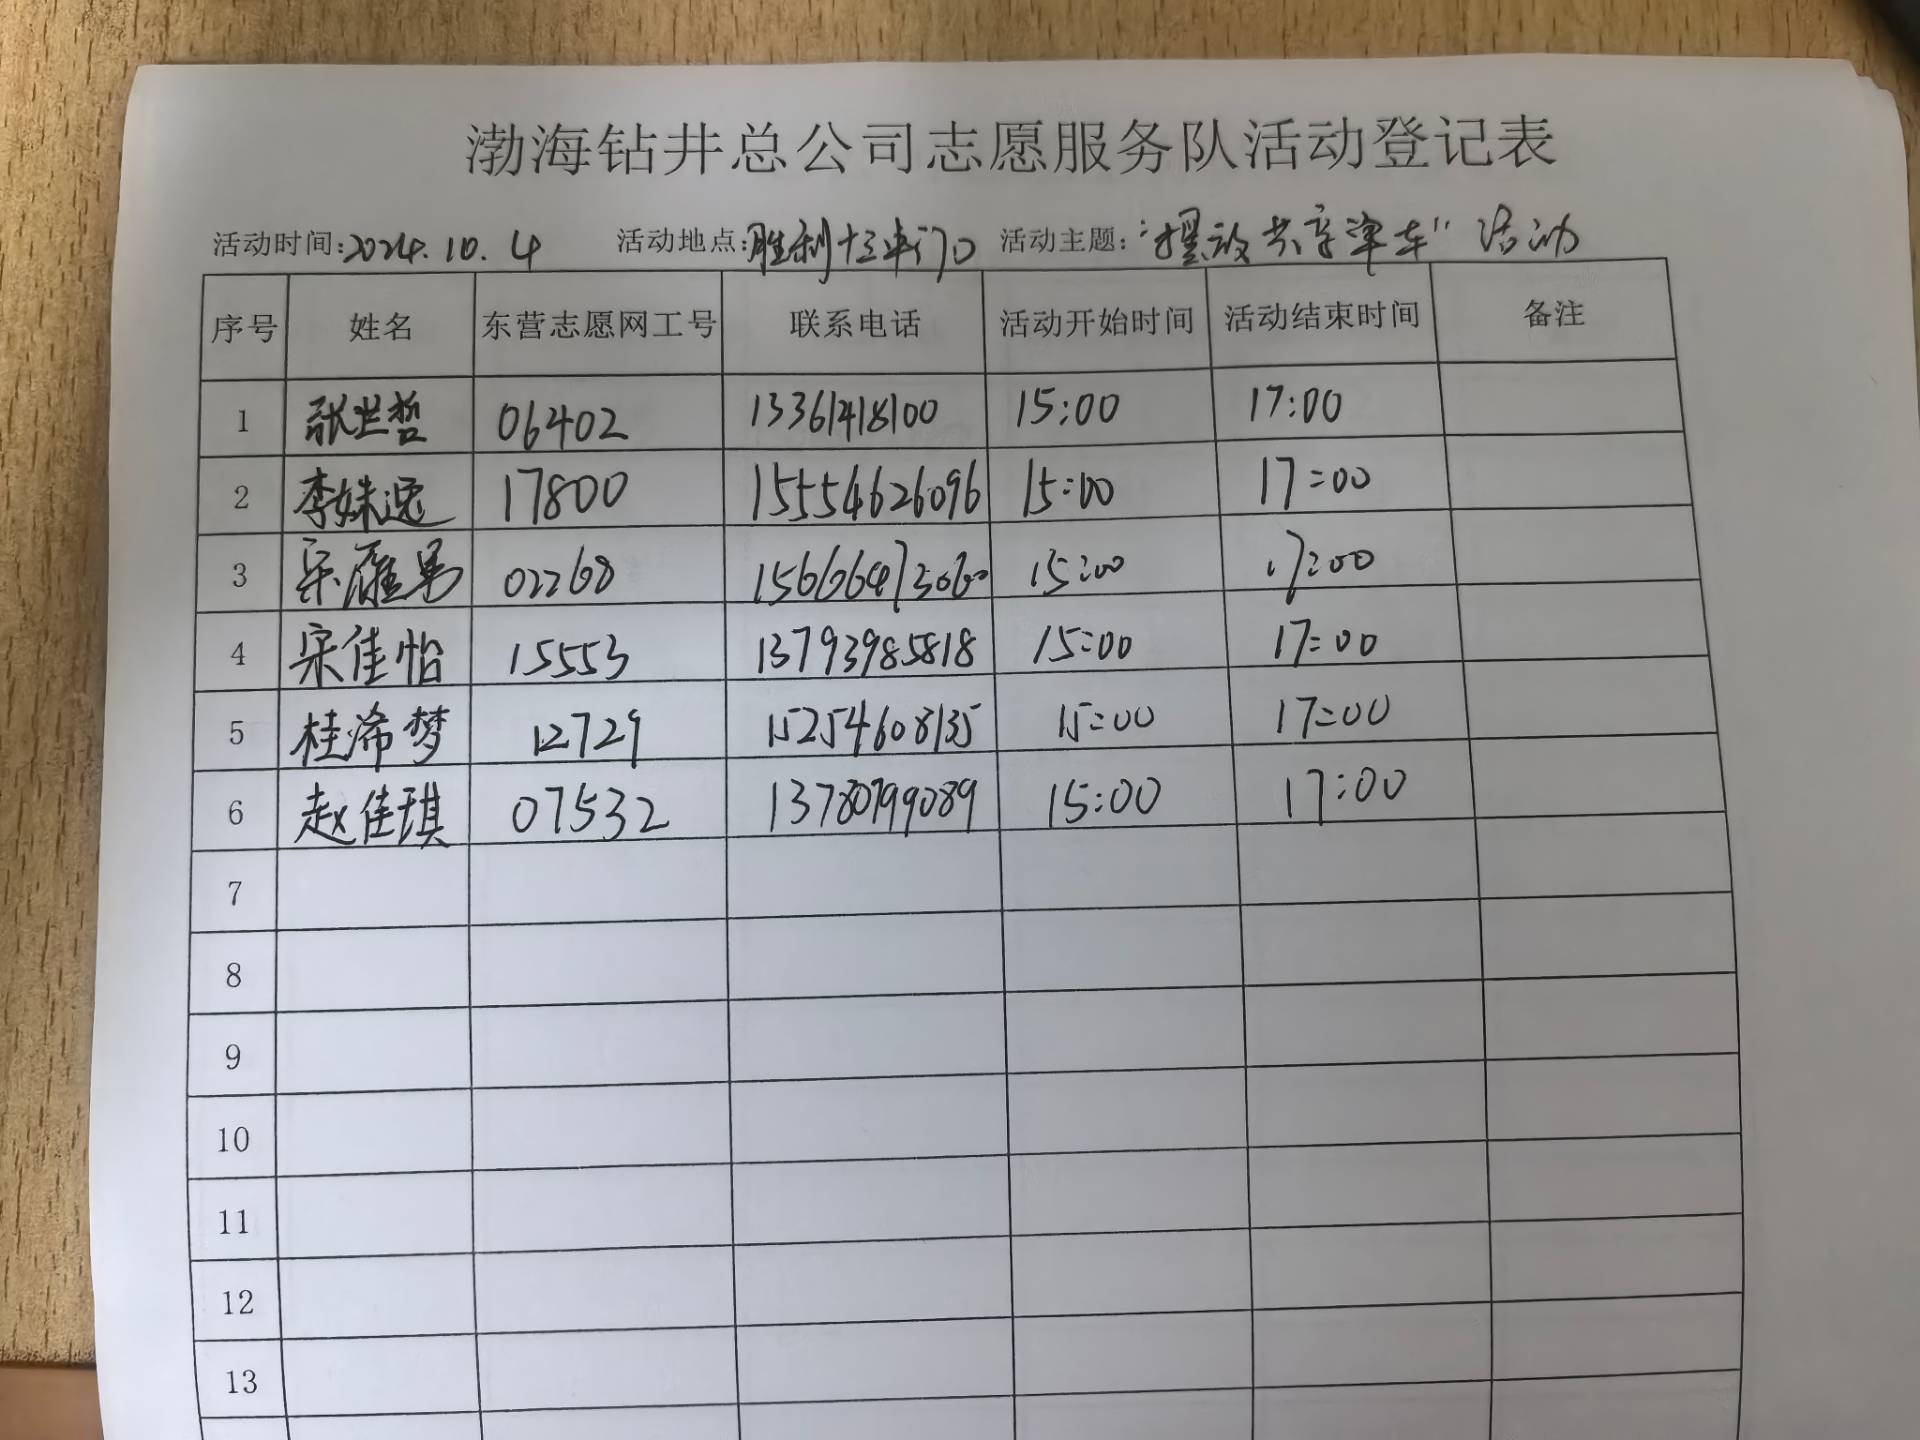 渤海钻井总公司志愿服务队活动登记表
活动时间:2024.10.4 活动地点:胜利十三中门口 活动主题:“摆放共享单车”活动
序号 姓名 东营志愿网工号 联系电话 活动开始时间 活动结束时间 备注
1 张世哲 06402 13361418100 15:00 17:00
2 李姝逸 17800 15554626096 15:00 17:00
3 02268 15:00 17:00
4 宋佳怡 15553 13793985818 15:00 17:00
5 桂浠梦 12729 15254608135 15:00 17:00
6 赵佳琪 07532 13780799089 15:00 17:00
7
8
9
10
11
12
13